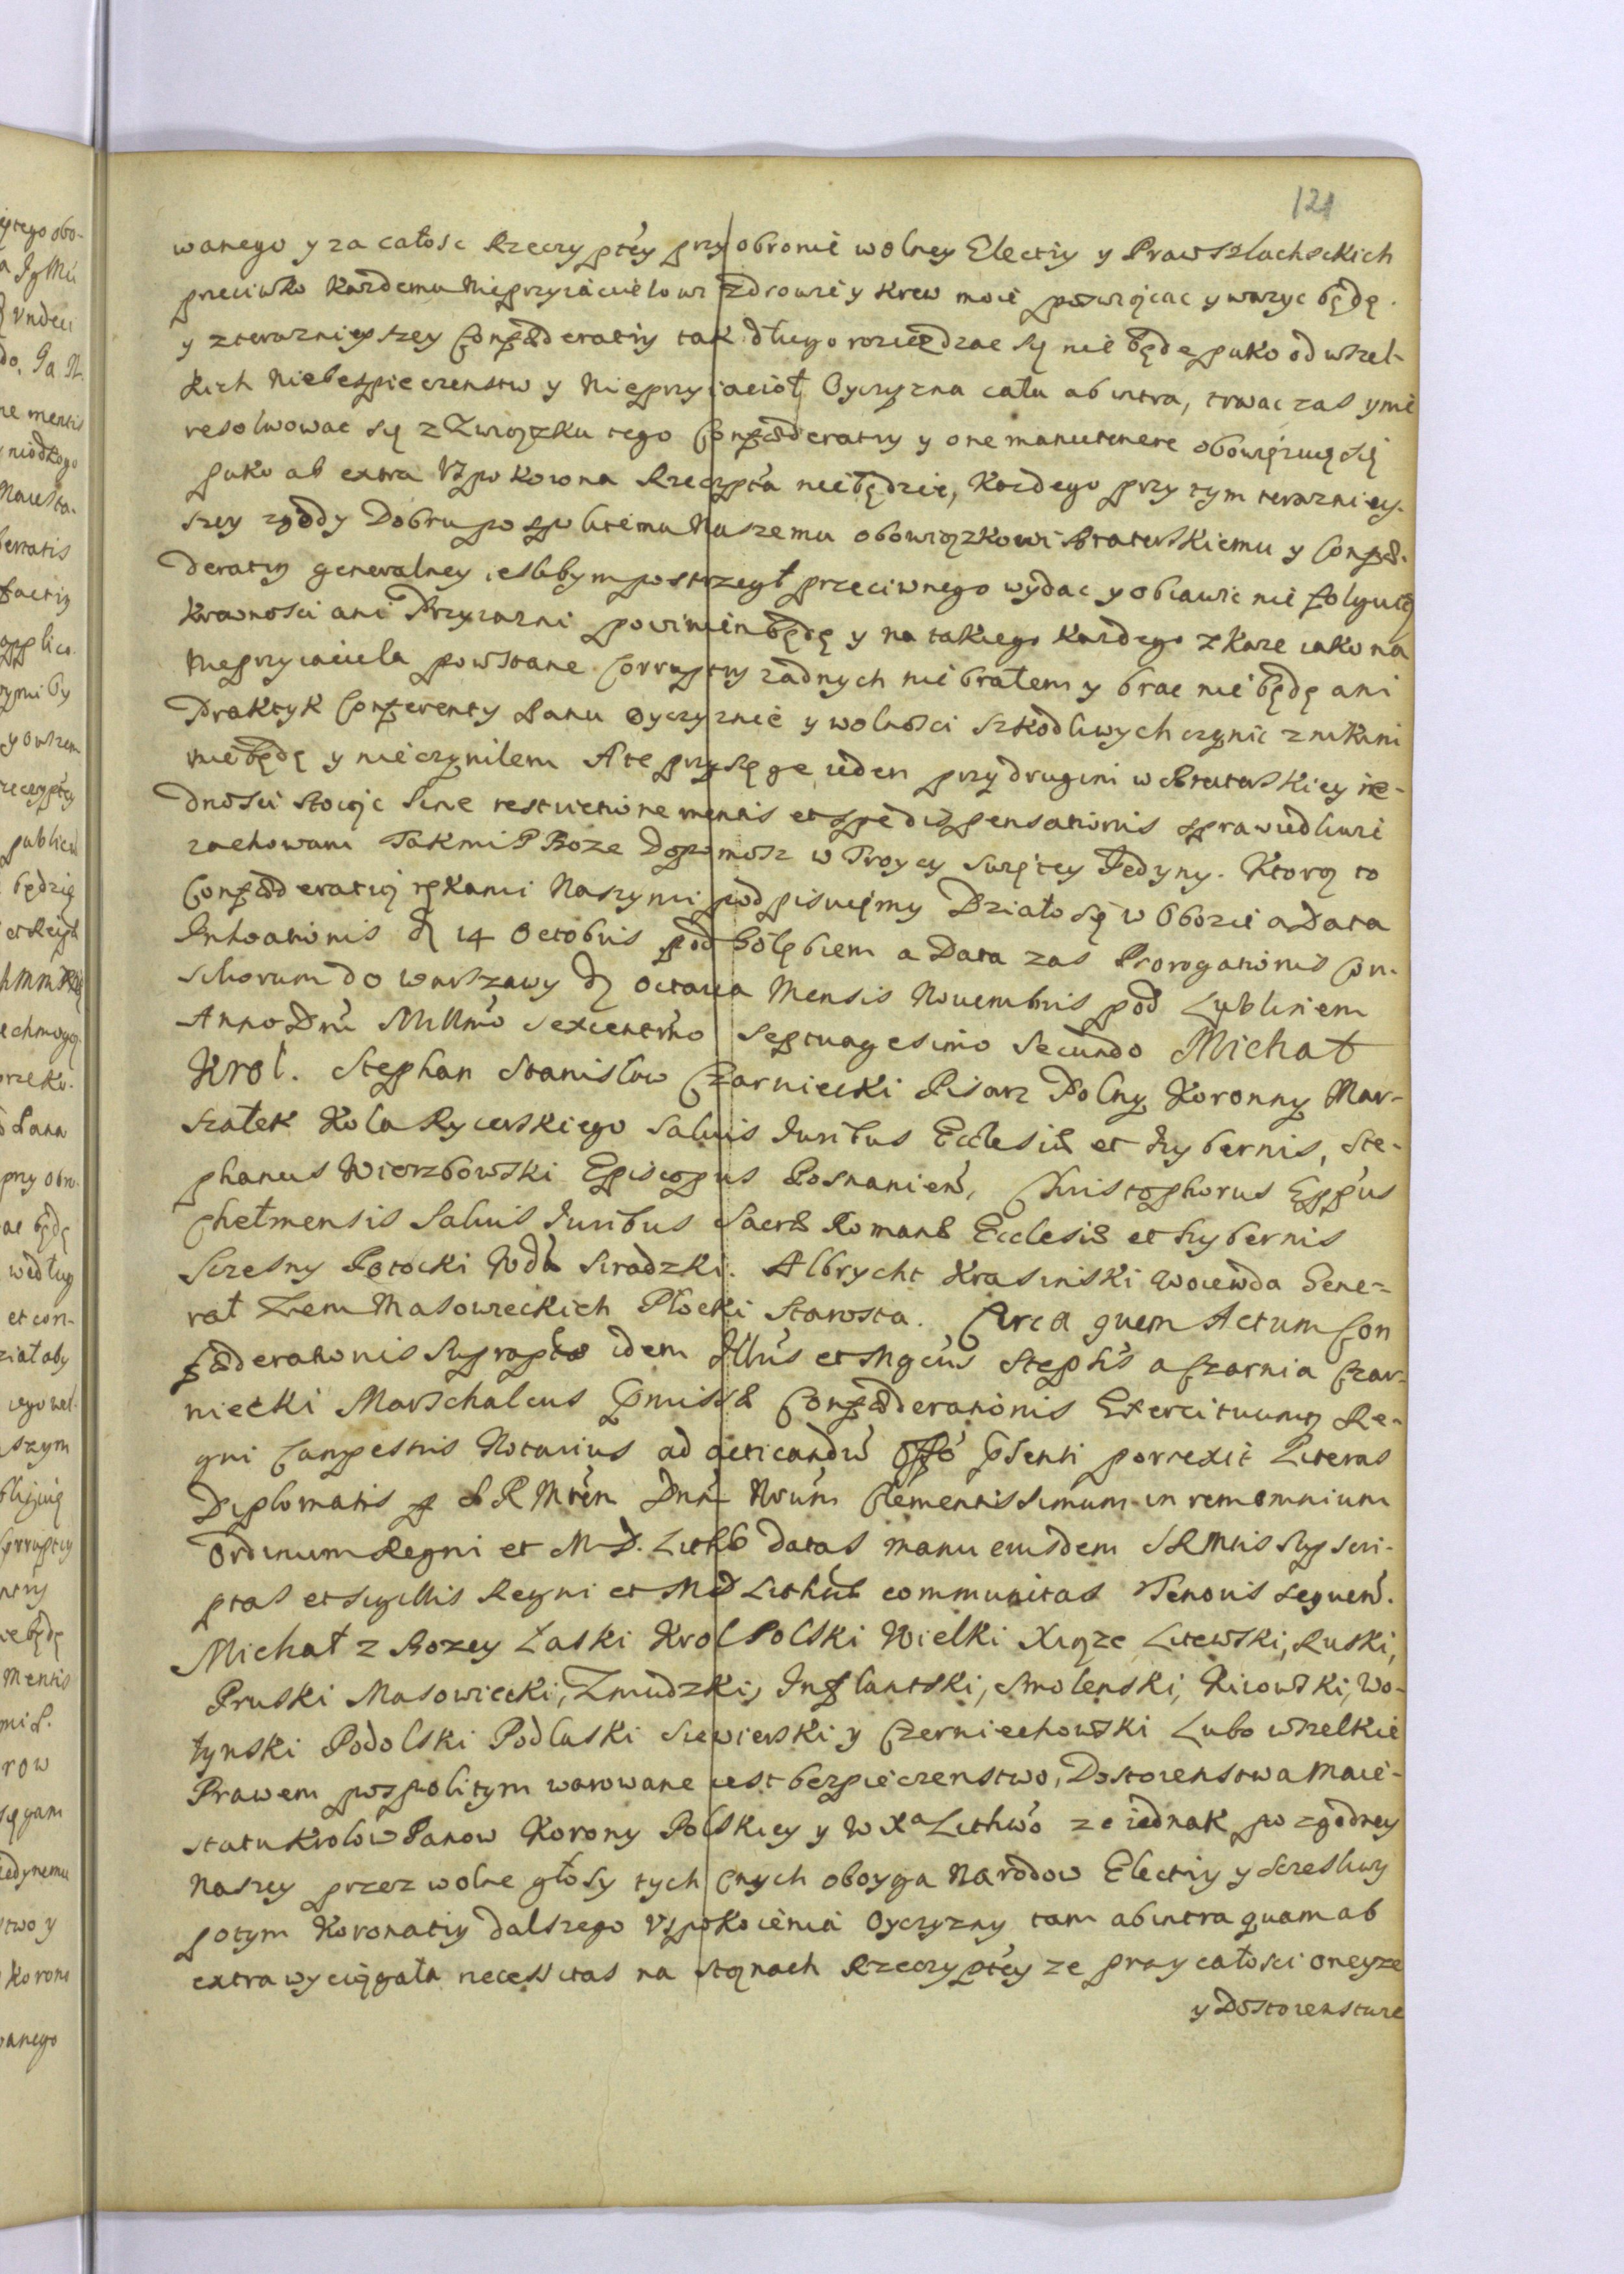 121
wanego y za całosc Rzeczy ptey przy obronie wolney Electiy y Praw Szlacheckich
przeciwko kazdemu Nieprzyiacielowi zdrowie y krew moię poswięcac y wazyc będę.
y z teraznieyszey Confœderatiy tak długo rozieżdzac sę nie będę puko od wszel-
kich Niebespieczenstw y Nieprzyiacioł Oyczyzna cała ab intra, trwac zas y nie
resolwowac sę z Związku tego Confœderatiy y one manutenere obowięzuię się
puko ab extra Uspokoiona Rzeczpta nie będzie, Kozdego przy tym terazniey-
szey zgody Dobru pospolitemu Naszemu obowiązkowi Braterskiemu y Confœ-
deratiy generalney, iesliby m postrzegł przeciwnego wydac y obiawic nie folguiąc
krewnosci ani Przyiazni powinien będę y na takiego kazdego zkaze iako na
Nieprzyiaciela powstane Corruptiy zadnych nie brałem y brac nie będę ani
Praktyk Conferenty Panu Oyczyznie y wolnosci szkodliwych czynic z nikim
nie będę y nie czynilem A te przysięgę ieden przy drugim w Braterskiey ie-
dnosci stoiąc sine restrictione mentis et spe dispensationis sprawiedliwie
zachowam Tak mi P Boze Dopomosz w Troycy Swiętey Jedyny. Ktorą to
Confœderatią rękami Naszymi podpisuięmy Działo sę w Obozie a Data
Inhoationis d 14 Octobris pod Gołębiem a Data zas Prorogationis Con-
siliorum do Warszawy d Octaua Mensis Nouembris pod Lublinem
Anno Dni Millmo sexcentmo septuagesimo secundo Michał
Krol. Stephan Stanisław Czarniecki Pisarz Polny Koronny Mar-
szałek Kola Rycerskiego saluis Juribus Ecclesiæ et hybernis, Ste-
phanus Wierzbowski Episcopus Posnanien, Christophorus Eppus
Chełmensis Saluis Juribus Sacræ Romanæ Ecclesiæ et hybernis
Szczesny Potocki Wda Siradzki. Albrycht Krasinski Woiewda Gene-
rał Ziem Masowieckich Płocki Starosta. Circa quem Actum Con
fœderationis supra idem Illus et Mgcus Stephs a Czarnia Czar-
niecki Marschalcus pmissæ Confœderationis Exercituumq Re-
gni Campestris Notarius ad acticandu Offo psenti porrexit Literas
Diplomatis p S R Mtem Dnm Nrum Clementissimum in rem omnium
Ordinum Regni et M D. Lith datas manu eiusdem S R Mtis supscri-
ptas et sigillis Regni et M D Lith communitas Tenoris sequen.
Michał z Bozey Łaski Krol Polski Wielki Xiąze Litewski, Ruski,
Pruski Masowiecki, Zmudzki, Inflantski, Smolenski, Kiiowski, Wo-
łynski Podolski Podlaski Siewierski y Czerniechowski Lubo wszelkie
Prawem pospolitym warowane iest bezpieczenstwo, Dostoienstwa Maie-
statu Krolow Panow Korony Polskiey y W Xa Lithwo ze iednak po zgodney
Naszey przez wolne głosy tych Cnych oboyga Narodow Electiy y Szczesliwy
potym Koronatiy dalszego Uspokoienia Oyczyzny tam ab intra quam ab
extra wyciągała necessitas na stąnach Rzeczy ptey ze przy całosci oneyze
y Dostoienstwie